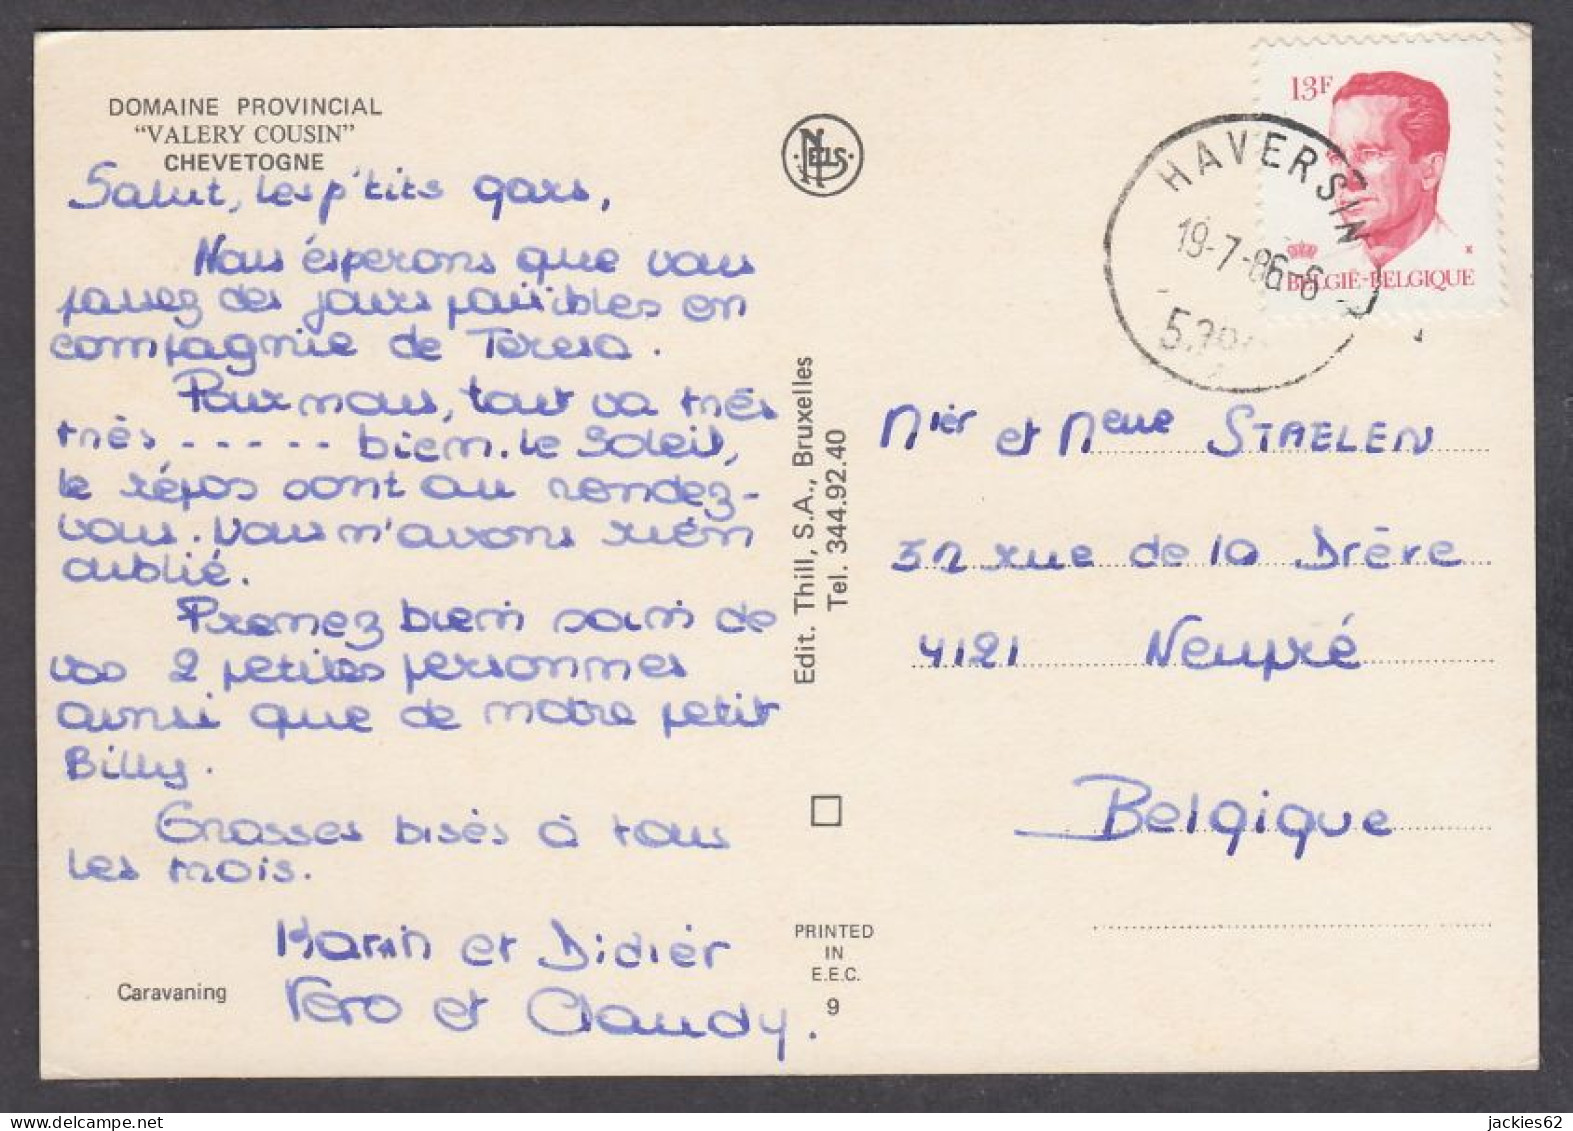 DOMAINE PROVINCIAL
"VALERY COUSIN"
CHEVETOGNE
Salut, les p'tits gars,
Nous ésperons que vous
passez des jours paisibles en
compagnie de Teresa.
Pour nous, tout va très
très ------ bien. Le Soleil,
le répos sont au rendez-
vous. Nous n'avons rien
oublié.
Prenez bien soin de
vos 2 petites personnes
ainsi que de notre petit
Billy.
Grosses bisès à tous
les trois.
Karin et Didier
Vero et Claudy.
Caravaning
NELS
Edit. Thill, S.A., Bruxelles
Tel. 344.92.40
PRINTED
IN
E.E.C.
9
13F
BELGIË-BELGIQUE
HAVERSIN
19-7-86-6
Mier et Meue STAELEN
32 rue de la Drève
4121 Neupré
Belgique
jackies62